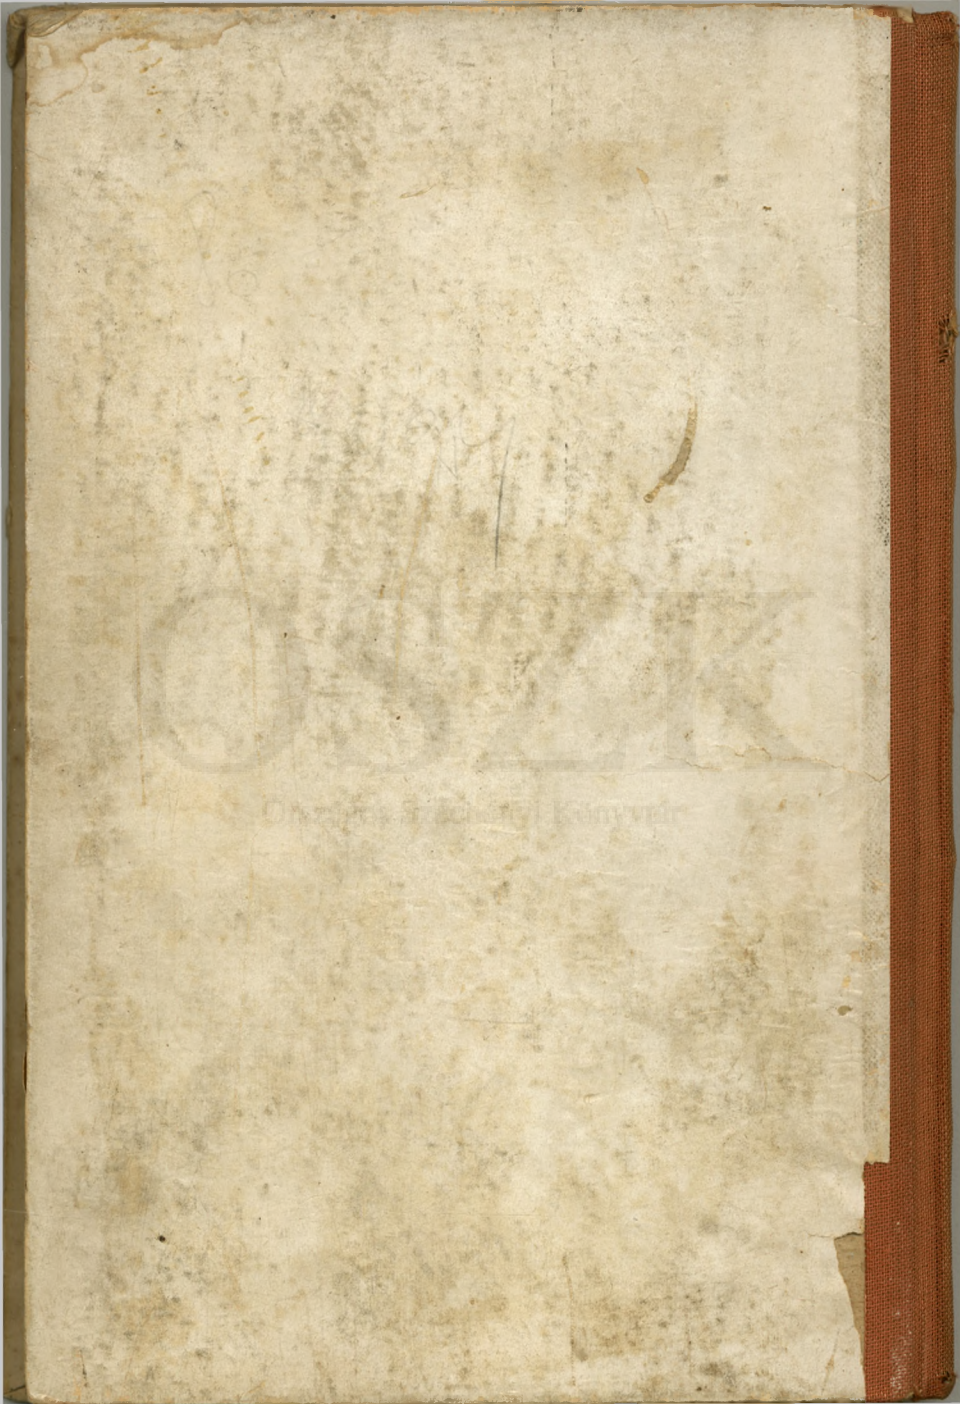 OSZK
Országos Széchényi Könyvtár